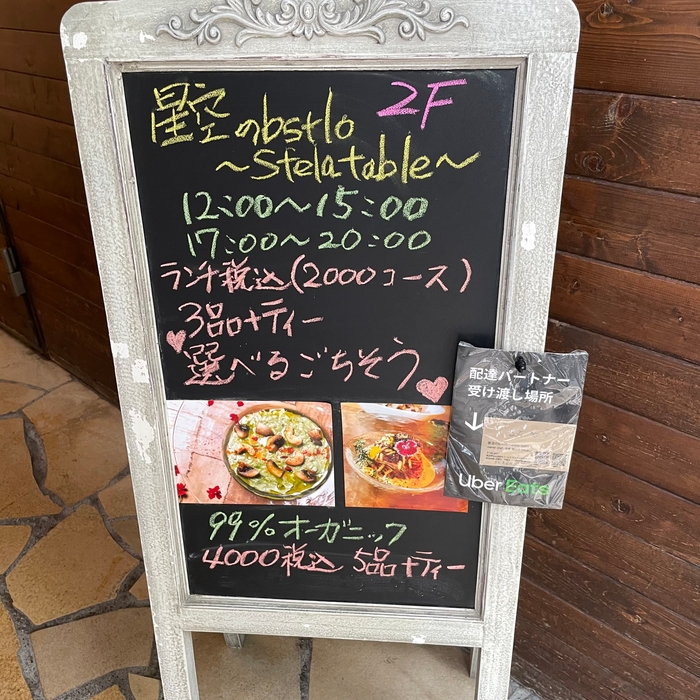 星空のbstlo 2F
~Stelatable~
12:00~15:00
17:00~20:00
ランチ税込(2000コース)
3品+ティー
選べるごちそう
配達パートナー
受け渡し場所
Uber Eats
99%オーガニック
4000税込 5品+ティー